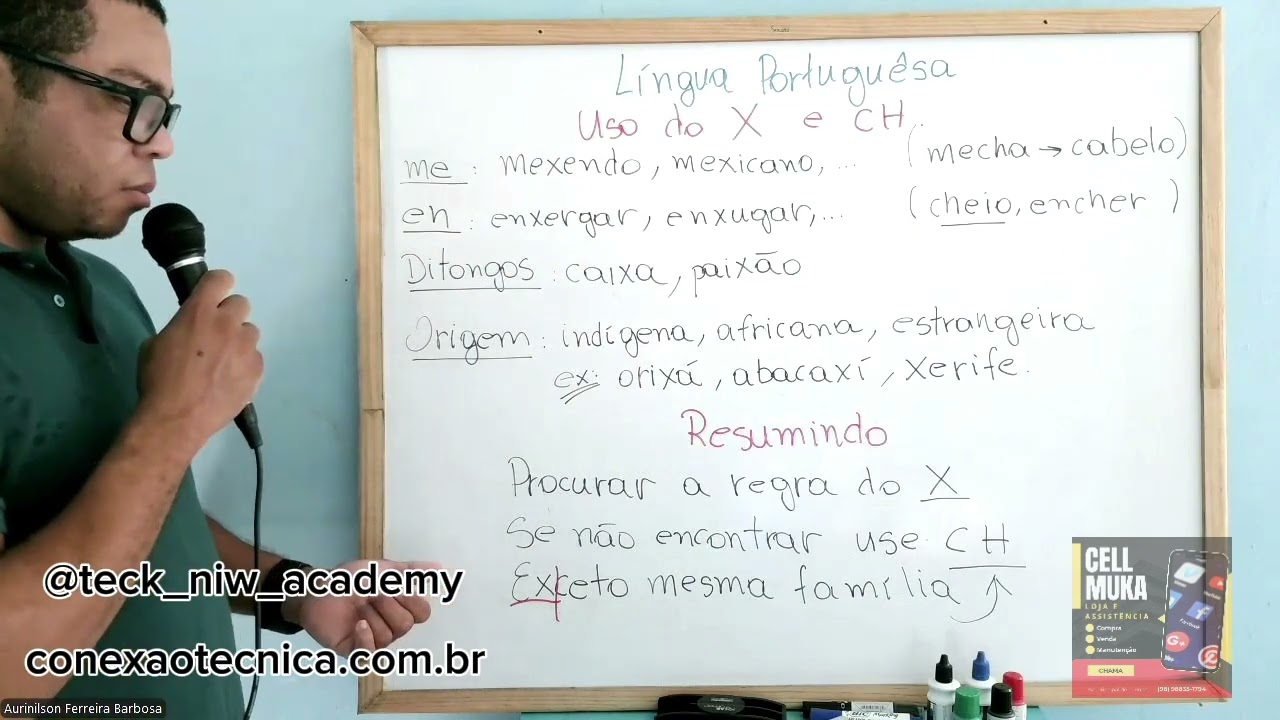 Língua Portuguêsa
Uso do X e CH.
me: mexendo, mexicano, ... (mecha → cabelo)
en: enxergar, enxugar, ... (cheio, encher)
Ditongos: caixa, paixão
Origem: indígena, africana, estrangeira
ex: orixá, abacaxí, xerife.
Resumindo
Procurar a regra do X
Se não encontrar use CH
Exceto mesma família
@teck_niw_academy
conexaotecnica.com.br
Aurinilson Ferreira Barbosa
CELL
MUKA
LOJA E
ASSISTÊNCIA
Compra
Venda
Manutenção
CHAMA